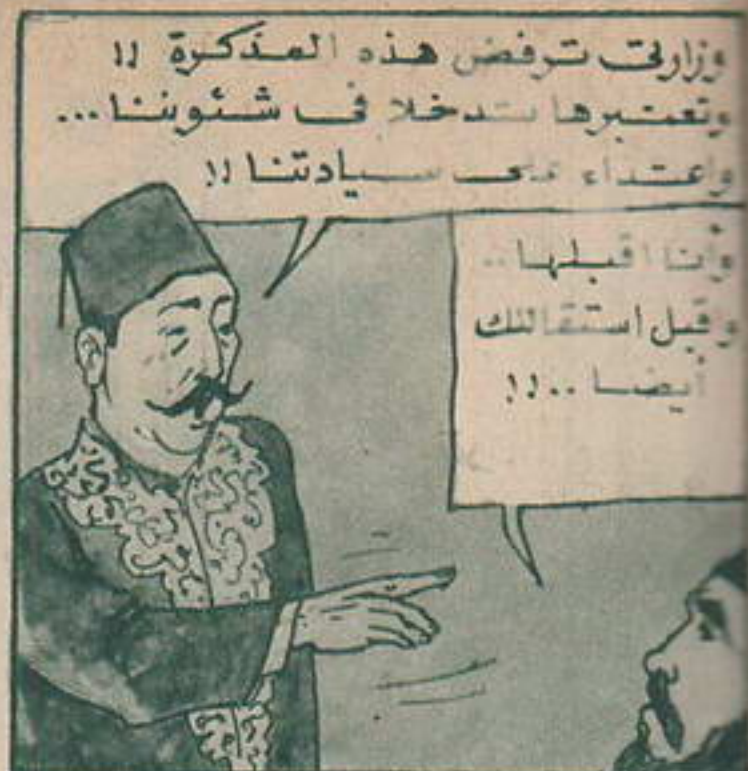 وزارتى ترفض هذه المذكرة !!
وتعتبرها تدخلا فى شئوننا ...
واعتداء على سيادتنا !!
وأنا اقبلها ..
وقبل استقالتك
أيضا ..!!